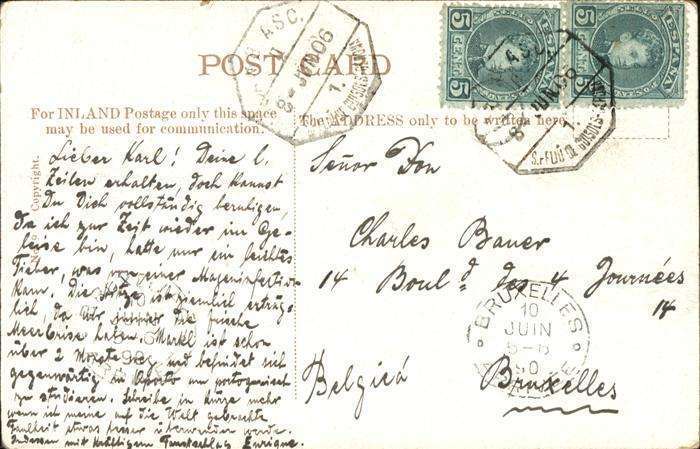 POST CARD
For INLAND Postage only this space
may be used for communication.
The ADDRESS only to be written here.
Copyright.
5 CENT. 5
ESPAÑA
5 CENT. 5
ESPAÑA
ASC.
JUN 06
1.
ASC.
8 JUN 06
1.
S. FELIU DE GUIXOLS
Lieber Karl! Deine l.
Zeilen erhalten, doch kannst
Du Dich vollständig beruhigen,
Da ich zur Zeit wieder im Ge-
leise bin, hatte nur ein leichtes
Fieber, was von einer Mageninfection
kam. Die Hitze ist ziemlich erträg-
lich, da wir immer die frische
Meerbrise haben. Markl ist schon
über 2 Monate weg und befindet sich
gegenwärtig in Oporto um portugiesisch
zu studieren. Schreibe in Kürze mehr
wenn ich meine auf die Welt gebrachte
Faulheit etwas besser überwunden werde.
Indessen mit kräftigem Faustschlag Enrique.
Señor Don
Charles Bauer
14 Boul.d des 4 Journées
14
Belgica Bruxelles
BRUXELLES
10
JUIN